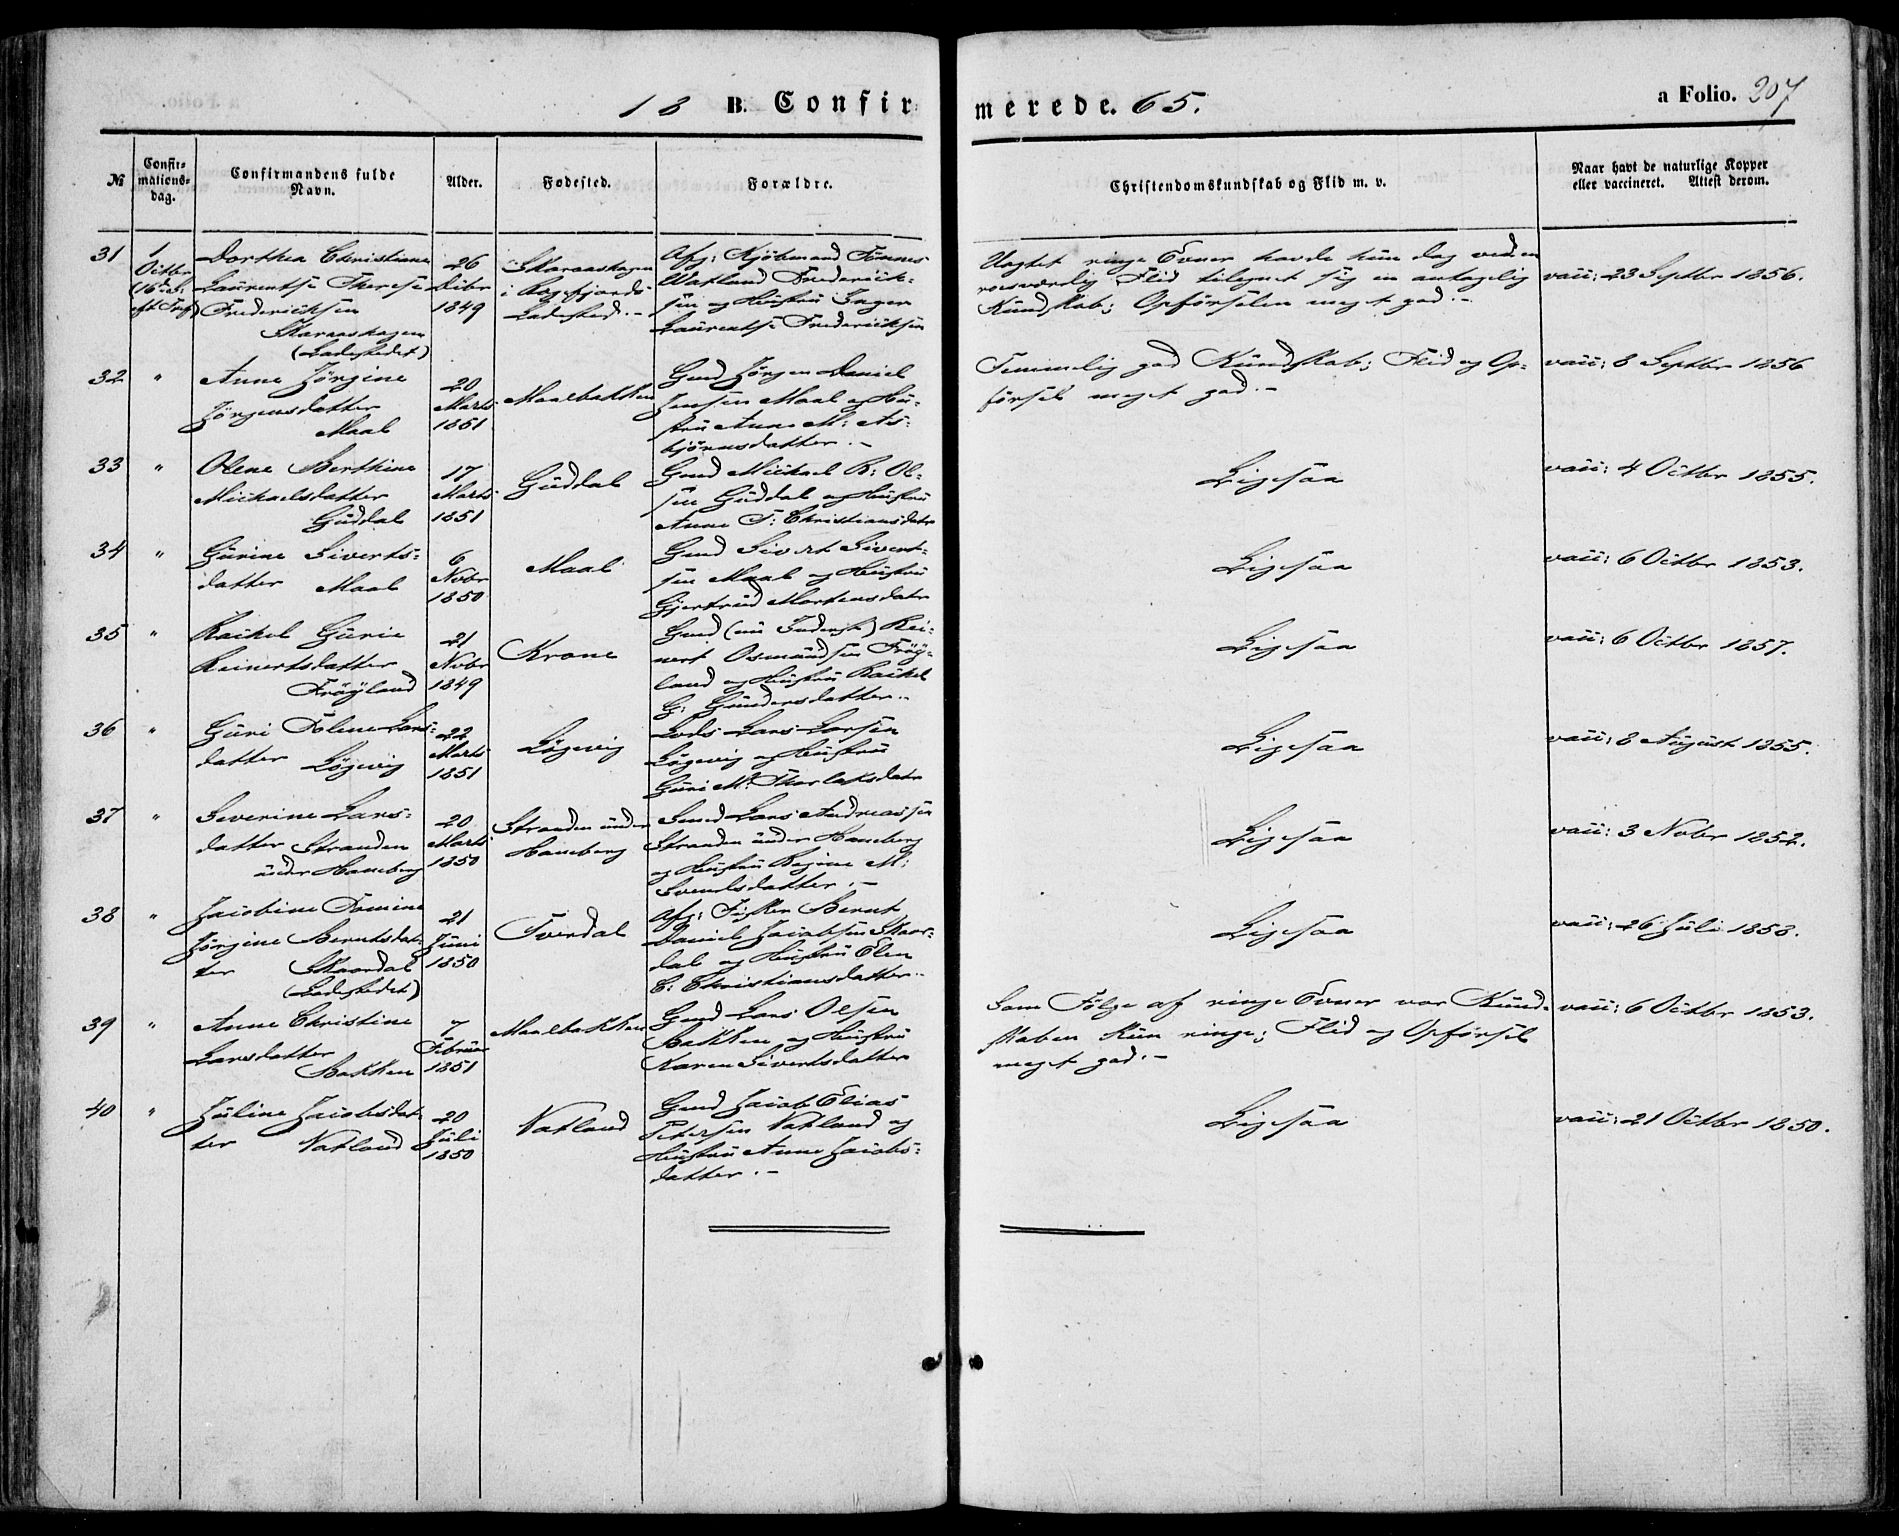 18 B. Confirmerede. 65. a Folio. 207
№ Confirmationsdag. Confirmandens fulde Navn. Alder. Fødested. Forældre. Christendomskundskab og Flid m. v. Naar havt de naturlige Kopper eller vaccineret. Attest derom.
31 1 Octbr (16 S. eft Tref)
Dorthea Christiane
Laurentse Therese
Fredericksen
Skaraashagen
(Ladestedet)
26
Dcbr
1849
Skaraashagen
i Rægefjords
Ladested.-
Afg: Kjøbmand Tønnes
Watland Frederick-
sen og Hustru Inger
Laurentse Fredericksen
Uagtet ringe Evner havde hun dog ved en
roesværdig Flid tilegnet sig en antagelig
Kundskab; Opførselen meget god.-
vacc: 23 Septbr 1856.
32 "
Anne Jørgine
Jørgensdatter
Maal
20
Marts
1851
Maalbakken
Gmd Jørgen Daniel
Jensen Maal og Hu-
stru Anne M: As-
bjørnsdatter.-
Temmelig god Kundskab; Flid og Op-
førsel meget god.-
vacc: 8 Septbr 1856
33 "
Olene Berthine
Michaelsdatter
Guddal
17
Marts
1851
Guddal
Gmd Michael B: Ol-
sen Guddal og Hustru
Anne T: Christiansdatr
Ligesaa
vacc: 4 Octbr 1855.
34 "
Gurine Siverts-
datter Maal
6
Novbr
1850
Maal
Gmd Sivert Sivert-
sen Maal og Hustru
Gjertrud Mortensdatr
Ligesaa
vacc: 6 Octbr 1853.
35 "
Rachel Gurie
Reinertsdatter
Frøyland
21
Novbr
1849
Krone
Gmd (nu Inderst) Rei-
nert Osmundsen Frøy-
land og Hustru Rachel
G: Gundersdatter.-
Ligesaa
vacc: 6 Octbr 1857.
36 "
Guri Tolene Lars-
datter Løgevig
22
Marts
1851
Løgevig
Lods Lars Larsen
Løgevig og Hustru
Guri M: Thorlaksdatr
Ligesaa
vacc: 8 August 1855.
37 "
Severine Lars-
datter Stranden
under Haneberg
20
Marts
1850
Stranden under
Haneberg
Smed Lars Andreassen
Stranden under Haneberg
og Hustru Regine M:
Svendsdatter.-
Ligesaa
vacc: 3 Novbr 1852.
38 "
Jacobine Tomine
Jørgine Berntsdat-
ter Skaardal
(Ladestedet)
21
Juni
1850
Tverdal
Afg: Fisker Bernt
Daniel Jacobsen Skaar-
dal og Hustru Elen
C: Christiansdatter.-
Ligesaa
vacc: 26 Juli 1853.
39 "
Anne Christine
Larsdatter
Bakken
7
Februar
1851
Maalbakken
Gmd Lars Olsen
Bakken og Hustru
Karen Sivertsdatter
Som Følge af ringe Evner var Kund-
skaben kun ringe; Flid og Opførsel
meget god.-
vacc: 6 Octbr 1853.
40 "
Juline Jacobsdat-
ter Natland
20
Juli
1850
Natland
Gmd Jacob Elias
Petersen Natland og
Hustru Anne Jacobs-
datter.-
Ligesaa
vacc: 21 Octbr 1850.